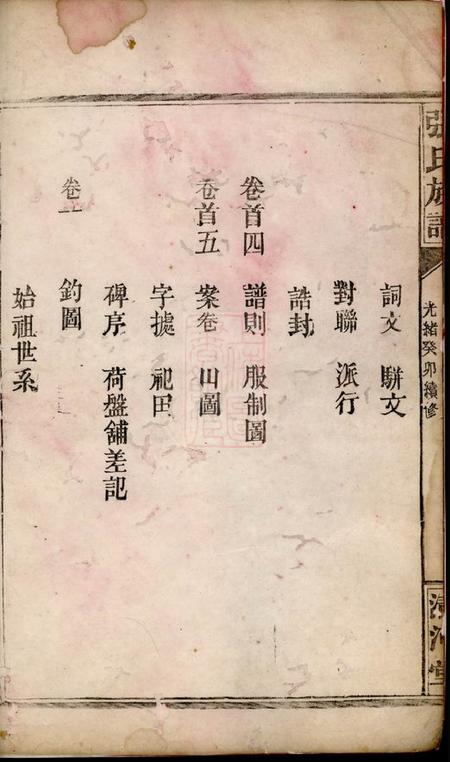 張氏族譜
光緒癸卯續修
清河堂
詞文 駢文
對聯 派行
誥封
卷首四 譜則 服制圖
卷首五 案卷 山圖
字據 祀田
碑序 荷盤舖差記
卷一 鈞圖
始祖世系